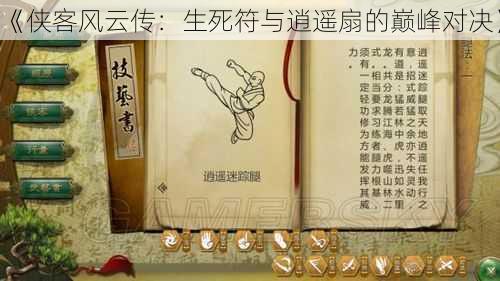 《侠客风云传：生死符与逍遥扇的巅峰对决
技藝書
逍遥迷踪腿
逍遥迷踪腿
天地逍遥任我行，
意，招式威猛之余亦不失灵动，
有道是：猛若林中虎，迅如水里
龙。共分龙腾江海、虎噬山林二
式。相当要求习练者腿力根基，
须有一定轻功修为方能发挥其威